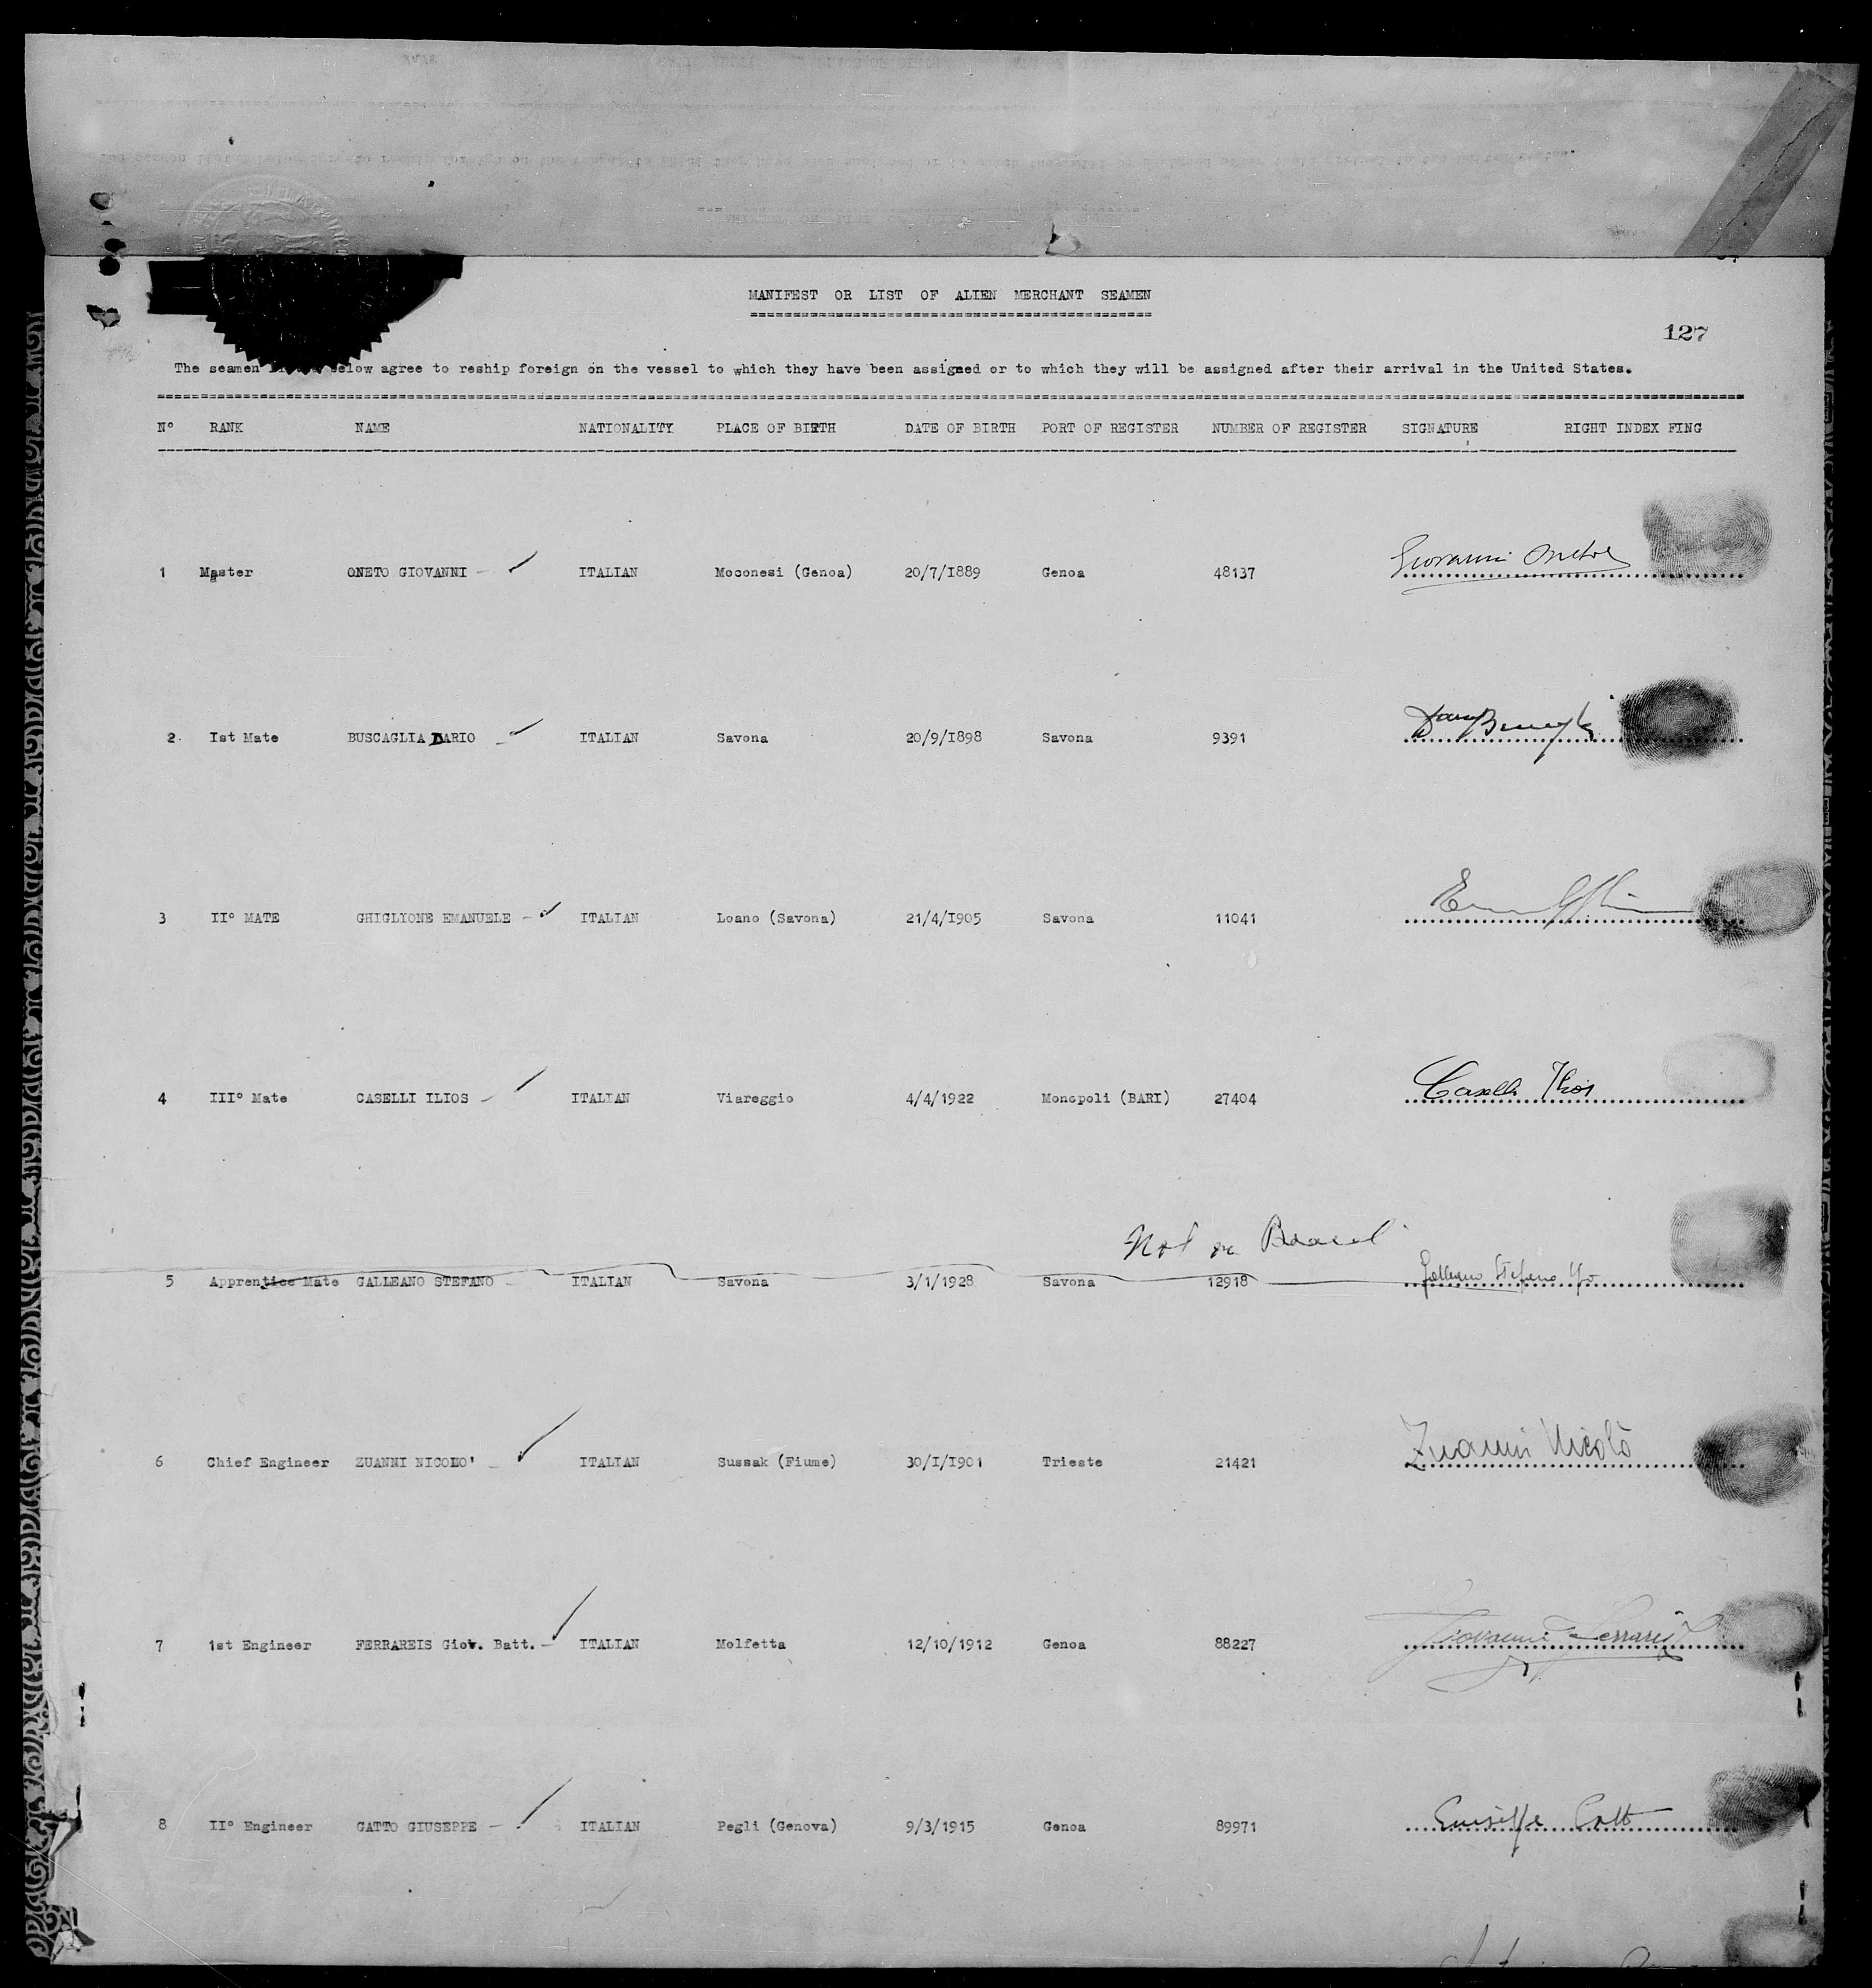 MANIFEST OR LIST OF ALIEN MERCHANT SEAMEN
127
The seamen below agree to reship foreign on the vessel to which they have been assigned or to which they will be assigned after their arrival in the United States.
N° RANK NAME NATIONALITY PLACE OF BIRTH DATE OF BIRTH PORT OF REGISTER NUMBER OF REGISTER SIGNATURE RIGHT INDEX FING
1 Master ONETO GIOVANNI - ITALIAN Moconesi (Genoa) 20/7/I889 Genoa 48137 Giovanni Oneto
2 Ist Mate BUSCAGLIA DARIO - ITALIAN Savona 20/9/I898 Savona 9391
3 II° MATE GHIGLIONE EMANUELE - ITALIAN Loano (Savona) 21/4/I905 Savona 11041
4 III° Mate CASELLI ILIOS - ITALIAN Viareggio 4/4/1922 Monopoli (BARI) 27404 Caselli Ilios
Not on Board
5 Apprentice Mate GALLEANO STEFANO - ITALIAN Savona 3/1/1928 Savona 12918 Galleano Stefano
6 Chief Engineer ZUANNI NICOLO' - ITALIAN Sussak (Fiume) 30/I/I901 Trieste 21421 Zuanni Nicolò
7 1st Engineer FERRAREIS Giov. Batt. - ITALIAN Molfetta 12/10/1912 Genoa 88227 Giovanni Ferrareis
8 II° Engineer GATTO GIUSEPPE - ITALIAN Pegli (Genova) 9/3/1915 Genoa 89971 Giuseppe Gatto